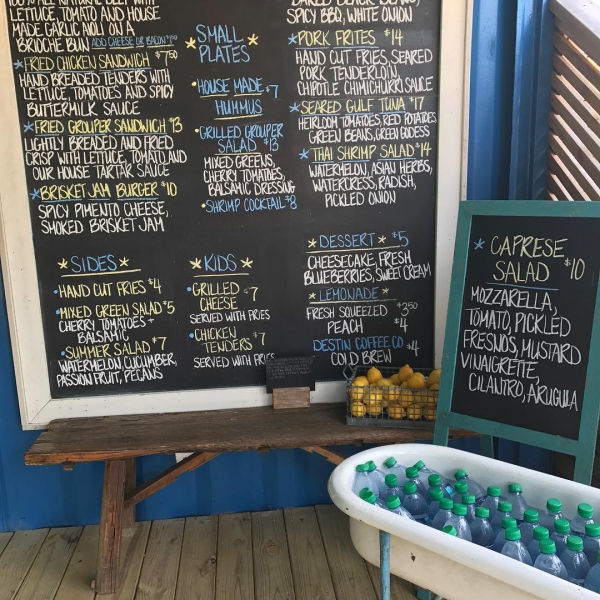 100% ALL NATURAL BEEF WITH
LETTUCE, TOMATO AND HOUSE
MADE GARLIC AIOLI ON A
BRIOCHE BUN ADD CHEESE OR BACON
FRIED CHICKEN SANDWICH $7.50
HAND BREADED TENDERS WITH
LETTUCE, TOMATOES AND SPICY
BUTTERMILK SAUCE
FRIED GROUPER SANDWICH $13
LIGHTLY BREADED AND FRIED
CRISP WITH LETTUCE, TOMATO AND
OUR HOUSE TARTAR SAUCE
BRISKET JAM BURGER $10
SPICY PIMENTO CHEESE,
SMOKED BRISKET JAM
SMALL
PLATES
HOUSE MADE $7
HUMMUS
GRILLED GROUPER
SALAD $13
MIXED GREENS,
CHERRY TOMATOES,
BALSAMIC DRESSING
SHRIMP COCKTAIL $8
BAKED BLACK BEANS,
SPICY BBQ, WHITE ONION
PORK FRITES $14
HAND CUT FRIES, SEARED
PORK TENDERLOIN,
CHIPOTLE CHIMICHURRI SAUCE
SEARED GULF TUNA $17
HEIRLOOM TOMATOES, RED POTATOES,
GREEN BEANS, GREEN GODESS
THAI SHRIMP SALAD $14
WATERMELON, ASIAN HERBS,
WATERCRESS, RADISH,
PICKLED ONION
SIDES
HAND CUT FRIES $4
MIXED GREEN SALAD $5
CHERRY TOMATOES +
BALSAMIC
SUMMER SALAD $7
WATERMELON, CUCUMBER,
PASSION FRUIT, PECANS
KIDS
GRILLED $7
CHEESE
SERVED WITH FRIES
CHICKEN $7
TENDERS
SERVED WITH FRIES
DESSERT $5
CHEESECAKE, FRESH
BLUEBERRIES, SWEET CREAM
LEMONADE
FRESH SQUEEZED $3.50
PEACH $4
DESTIN COFFEE CO $4
COLD BREW
CAPRESE
SALAD $10
MOZZARELLA,
TOMATO, PICKLED
FRESNOS, MUSTARD
VINAIGRETTE,
CILANTRO, ARUGULA